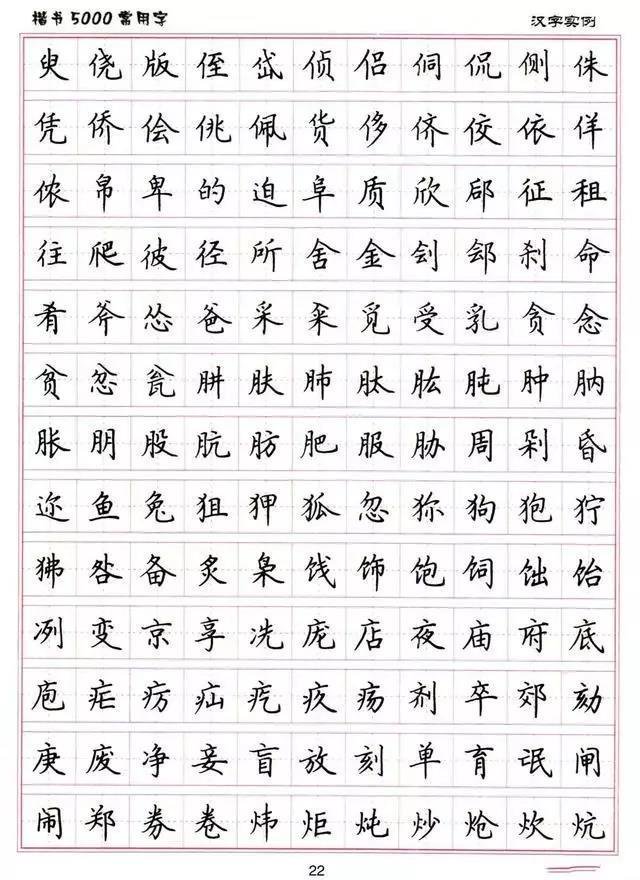 楷书5000常用字 汉字实例
臾侥版侄岱侦侣侗侃侧侏
凭侨侩佻佩货侈侪佼依佯
侬帛卑的迫阜质欣郈征租
往爬彼径所舍金刽郐刹命
肴斧怂爸采采觅受乳贪念
贫忿瓮肼肤肺肽肱肫肿肭
胀朋股肮肪肥服胁周剁昏
迩鱼兔狙狎狐忽狝狗狍狞
狒咎备炙枭饯饰饱饲饳饴
冽变京享冼庞店夜庙府底
庖疟疠疝疙疚疡剂卒郊劾
庚废净妾盲放刻单育氓闸
闹郑券卷炜炬炖炒炝炊炕
22